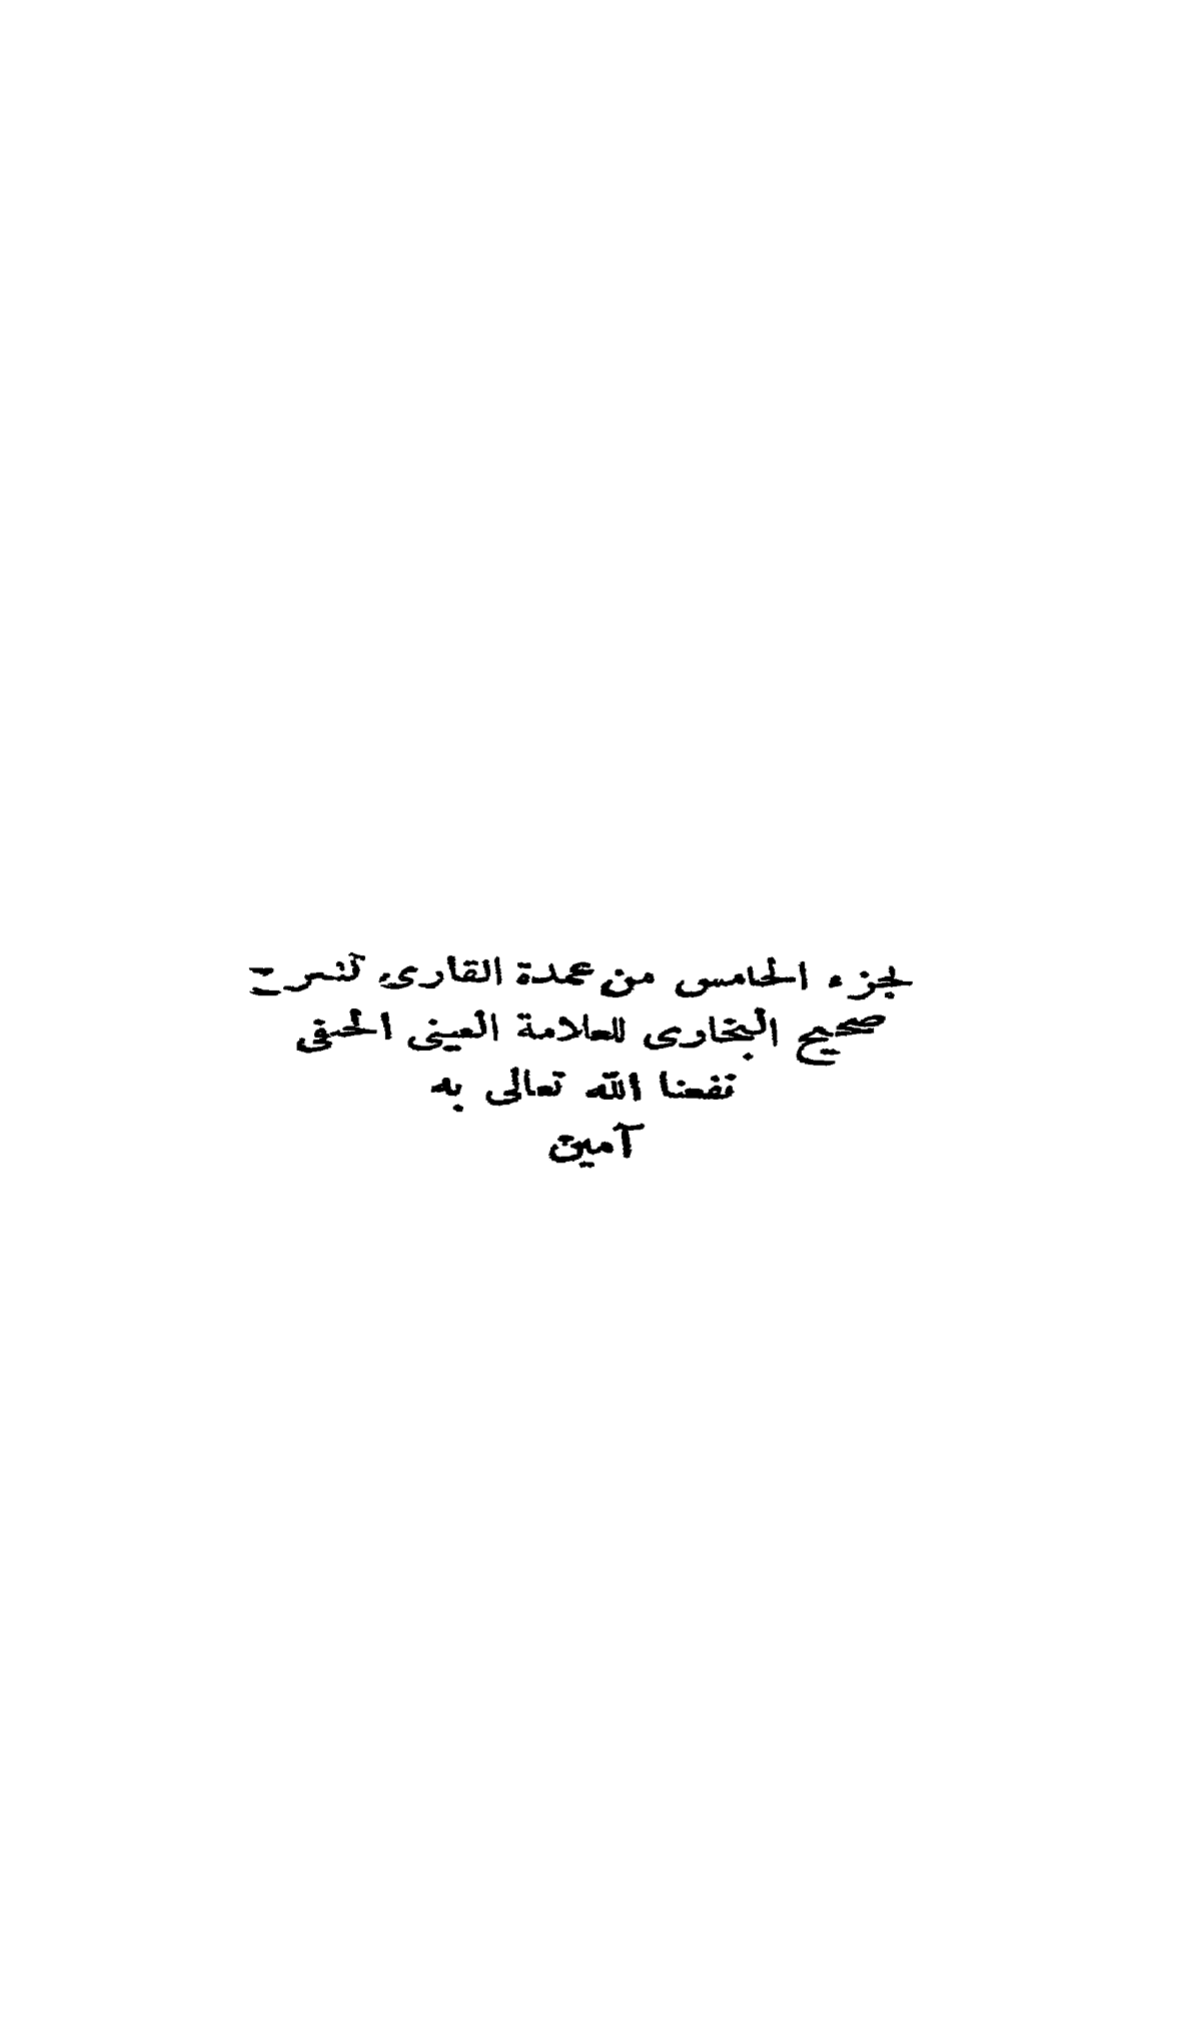 لجزء الخامس من عمدة القارئ لشرح
صحيح البخارى للعلامة العينى الحنفى
نفعنا الله تعالى به
آمين